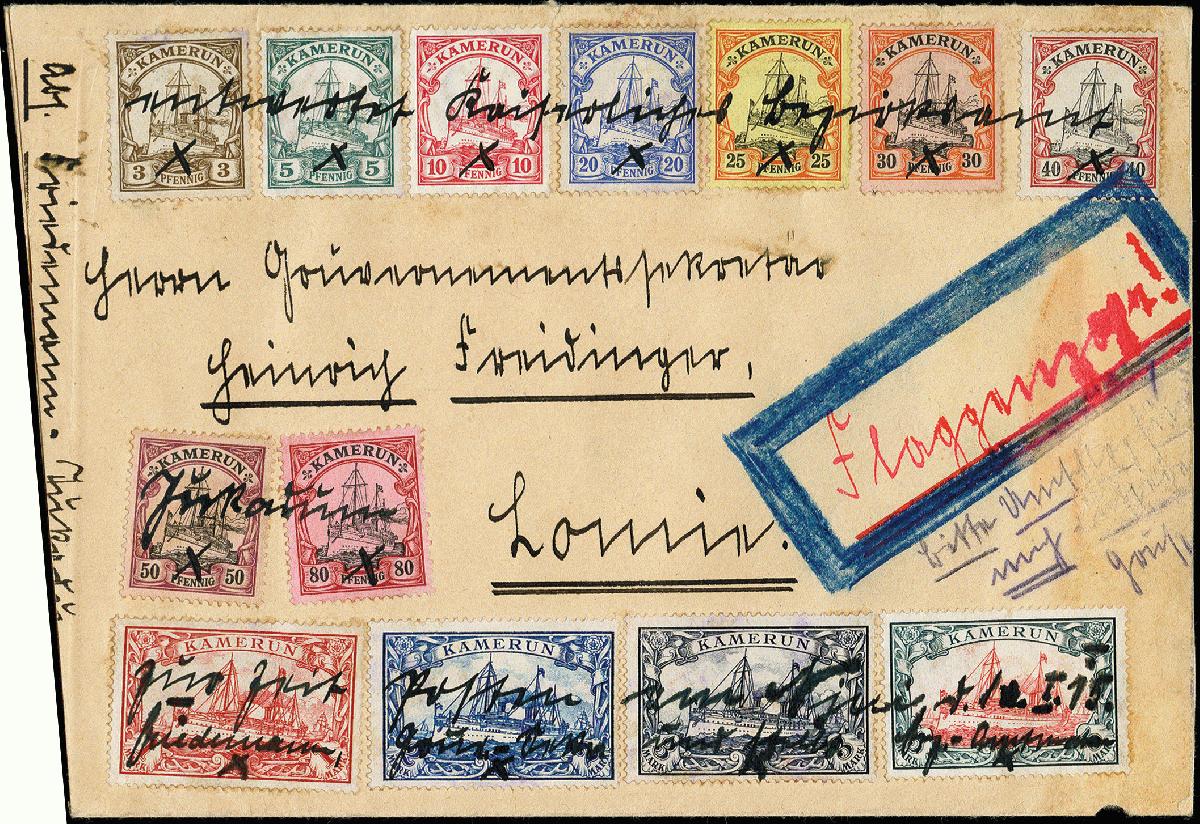 KAMERUN KAMERUN KAMERUN KAMERUN KAMERUN KAMERUN KAMERUN
entwertet Kaiserliches Bezirksamt
X X X X X X X
3 PFENNIG 3 5 PFENNIG 5 10 PFENNIG 10 20 PFENNIG 20 25 PFENNIG 25 30 PFENNIG 30 40 PFENNIG 40
Herrn Gouvernementssekretär
Heinrich Freidinger,
Flaggenzgr!
Lomie.
bitte Umschlag
KAMERUN KAMERUN
Jukaduma
X X
50 PFENNIG 50 80 PFENNIG 80
KAMERUN KAMERUN KAMERUN KAMERUN
Zur Zeit Posten am Njue, d. 12. I. 15.
Friedemann, Gouv.-Sekr.
X X X X
MARK MARK
Abs. Friedemann. Jukad.